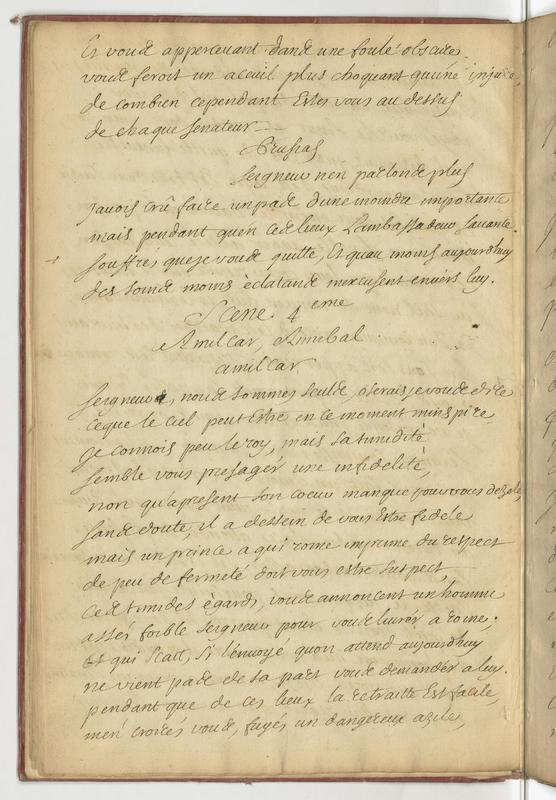 Et voud appercevant dand une foule obscure
voud feroit un aceuil plus choquant quune injure,
de combien cependant Estes vous au dessus
de chaque senateur —
Prusias
Seigneur nen parlond plus
javois crû faire un pad dune moindre importance
mais pendant quen ced lieux Lambassadeur savance
souffrés que je voud quitte, Et quau moins aujourdhuy
des soind moins éclatand mexcusent envers luy.
Scene. 4eme
Amilcar, Annibal
amilcar
Seigneur, noud sommes seuld, oserais je voud dire
ceque le Ciel peut Estre en ce moment minspire
je connois peu le roy, mais sa timidité
semble vous presager une infidelité,
non qu'apresent son coeur manque pour vous de zele,
sand doute, il a dessein de vous Estre fidele
mais un prince a qui rome imprime du respect
de peu de fermeté doit vous estre suspect,
ced timides égards, voud annoncent un homme
assés foible seigneur pour voud livrer a rome;
Et qui scait, si lenvoyé quon attend aujourdhuy
ne vient pad de sa part voud demander a luy.
pendant que de ces lieux la retraitte Est facile,
men croirés voud, fuyés un dangereux azile,